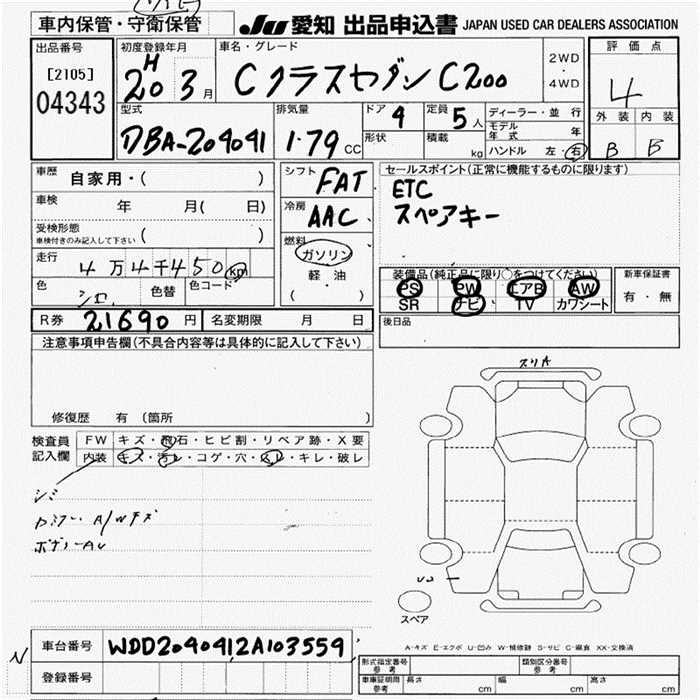 車内保管・守衛保管
JU 愛知 出品申込書 JAPAN USED CAR DEALERS ASSOCIATION
出品番号
[2105]
04343
初度登録年月
H
20 3月
車名・グレード
CクラスセダンC200
2WD
・
4WD
評価点
4
外装 内装
B B
型式
DBA-204041
排気量
1.79 CC
ドア 4
形状
定員 5人
積載 kg
ディーラー・並 行
モデル年式 年
ハンドル 左・右
車歴 自家用・( )
車検 年 月( 日)
受検形態
車検付きのみ記入して下さい ( )
走行 4万4千450km
色 シロ 色替 色コード
シフト FAT
冷房 AAC
燃料
ガソリン
軽油
( )
セールスポイント(正常に機能するものに限ります)
ETC
スペアキー
装備品(純正品に限り○をつけてください)
PS PW エアB AW
SR ナビ TV カワシート
新車保証書
有・無
R券 21690円 名変期限 月 日
後日品
注意事項申告欄(不具合内容等は具体的に記入して下さい)
修復歴 有(箇所 )
検査員
記入欄
FW キズ・飛石・ヒビ割・リペア跡・X要
内装 キズ・汚レ・コゲ・穴・スレ・キレ・破レ
シミ
スリA
スペア
A-キズ E-エクボ U-凹み W-補修跡 S-サビ C-腐食 XX-交換済
N
車台番号 WDD2040412A103559
登録番号
形式指定番号
参考
類別区分番号
参考
車庫証明用
参考
長さ cm 幅 cm 高さ cm